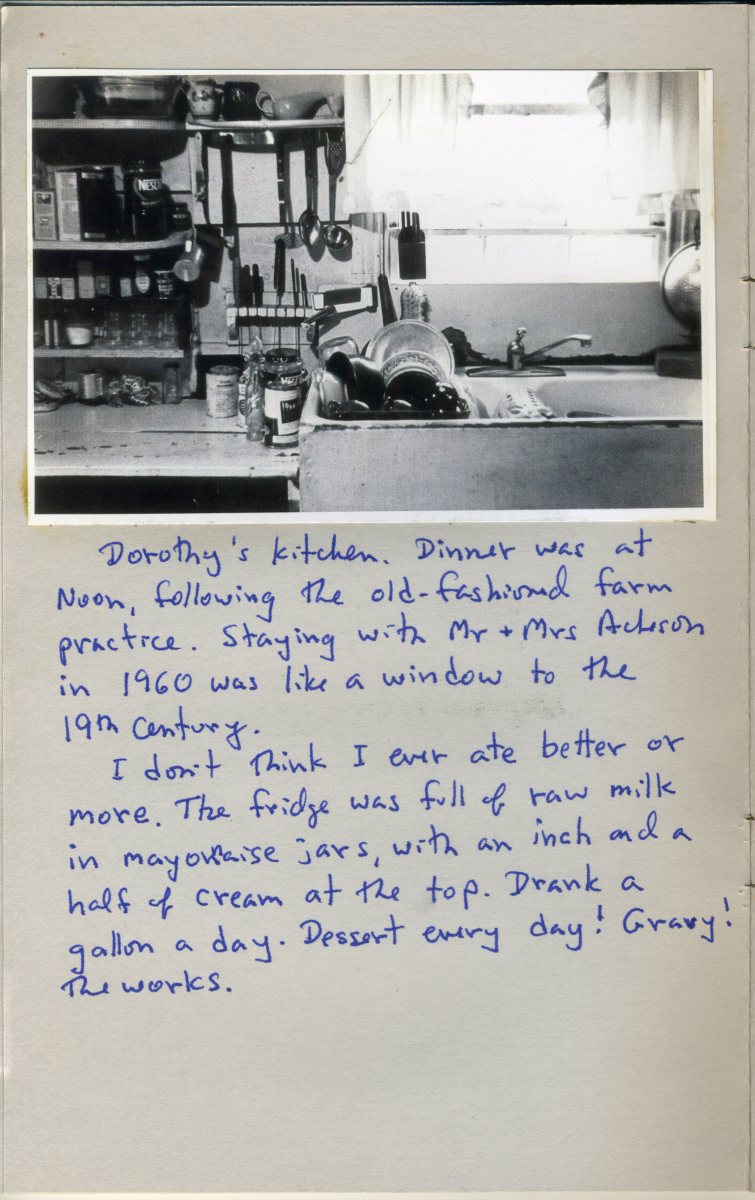 NESC
Dorothy's kitchen. Dinner was at
Noon, following the old-fashioned farm
practice. Staying with Mr + Mrs Acheson
in 1960 was like a window to the
19th Century.
I don't think I ever ate better or
more. The fridge was full of raw milk
in mayonnaise jars, with an inch and a
half of cream at the top. Drank a
gallon a day. Dessert every day! Gravy!
The works.